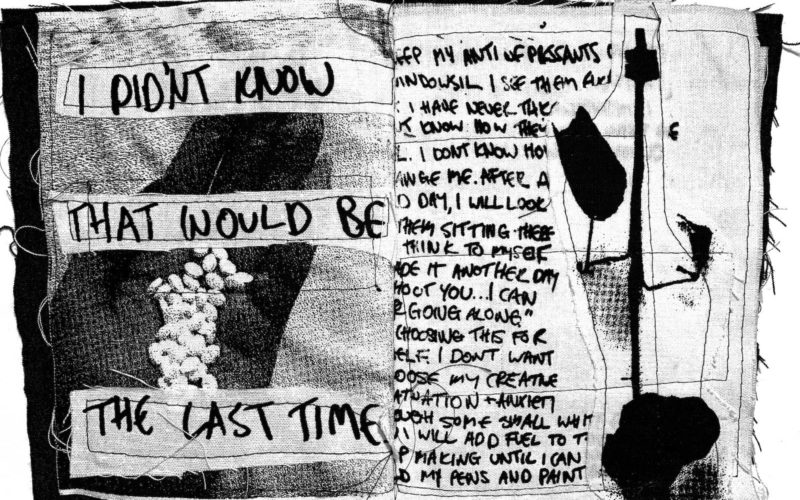 I DIDN'T KNOW
THAT WOULD BE
THE LAST TIME
EEP MY ANTI DEPRESSANTS
INDOWSIL I SEE THEM
I HAVE NEVER TAK
KNOW HOW THEY
I DONT KNOW HO
ANGE ME. AFTER A
D DAY, I WILL LOOK
THEM SITTING THERE
THINK TO MYSELF
ADE IT ANOTHER DAY
HOUT YOU... I CAN
GOING ALONE"
CHOOSING THIS FOR
ELF. I DONT WANT
OOSE MY CREATIVE
ATNATION + ANXIETY
OUGH SOME SMALL WHIT
WILL ADD FUEL TO T
P MAKING UNTIL I CAN
D MY PENS AND PAINT